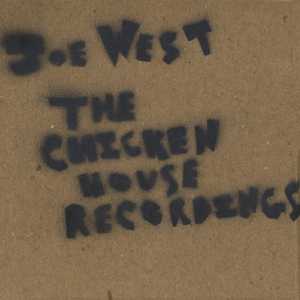 JOE WEST
THE
CHICKEN
HOUSE
RECORDINGS